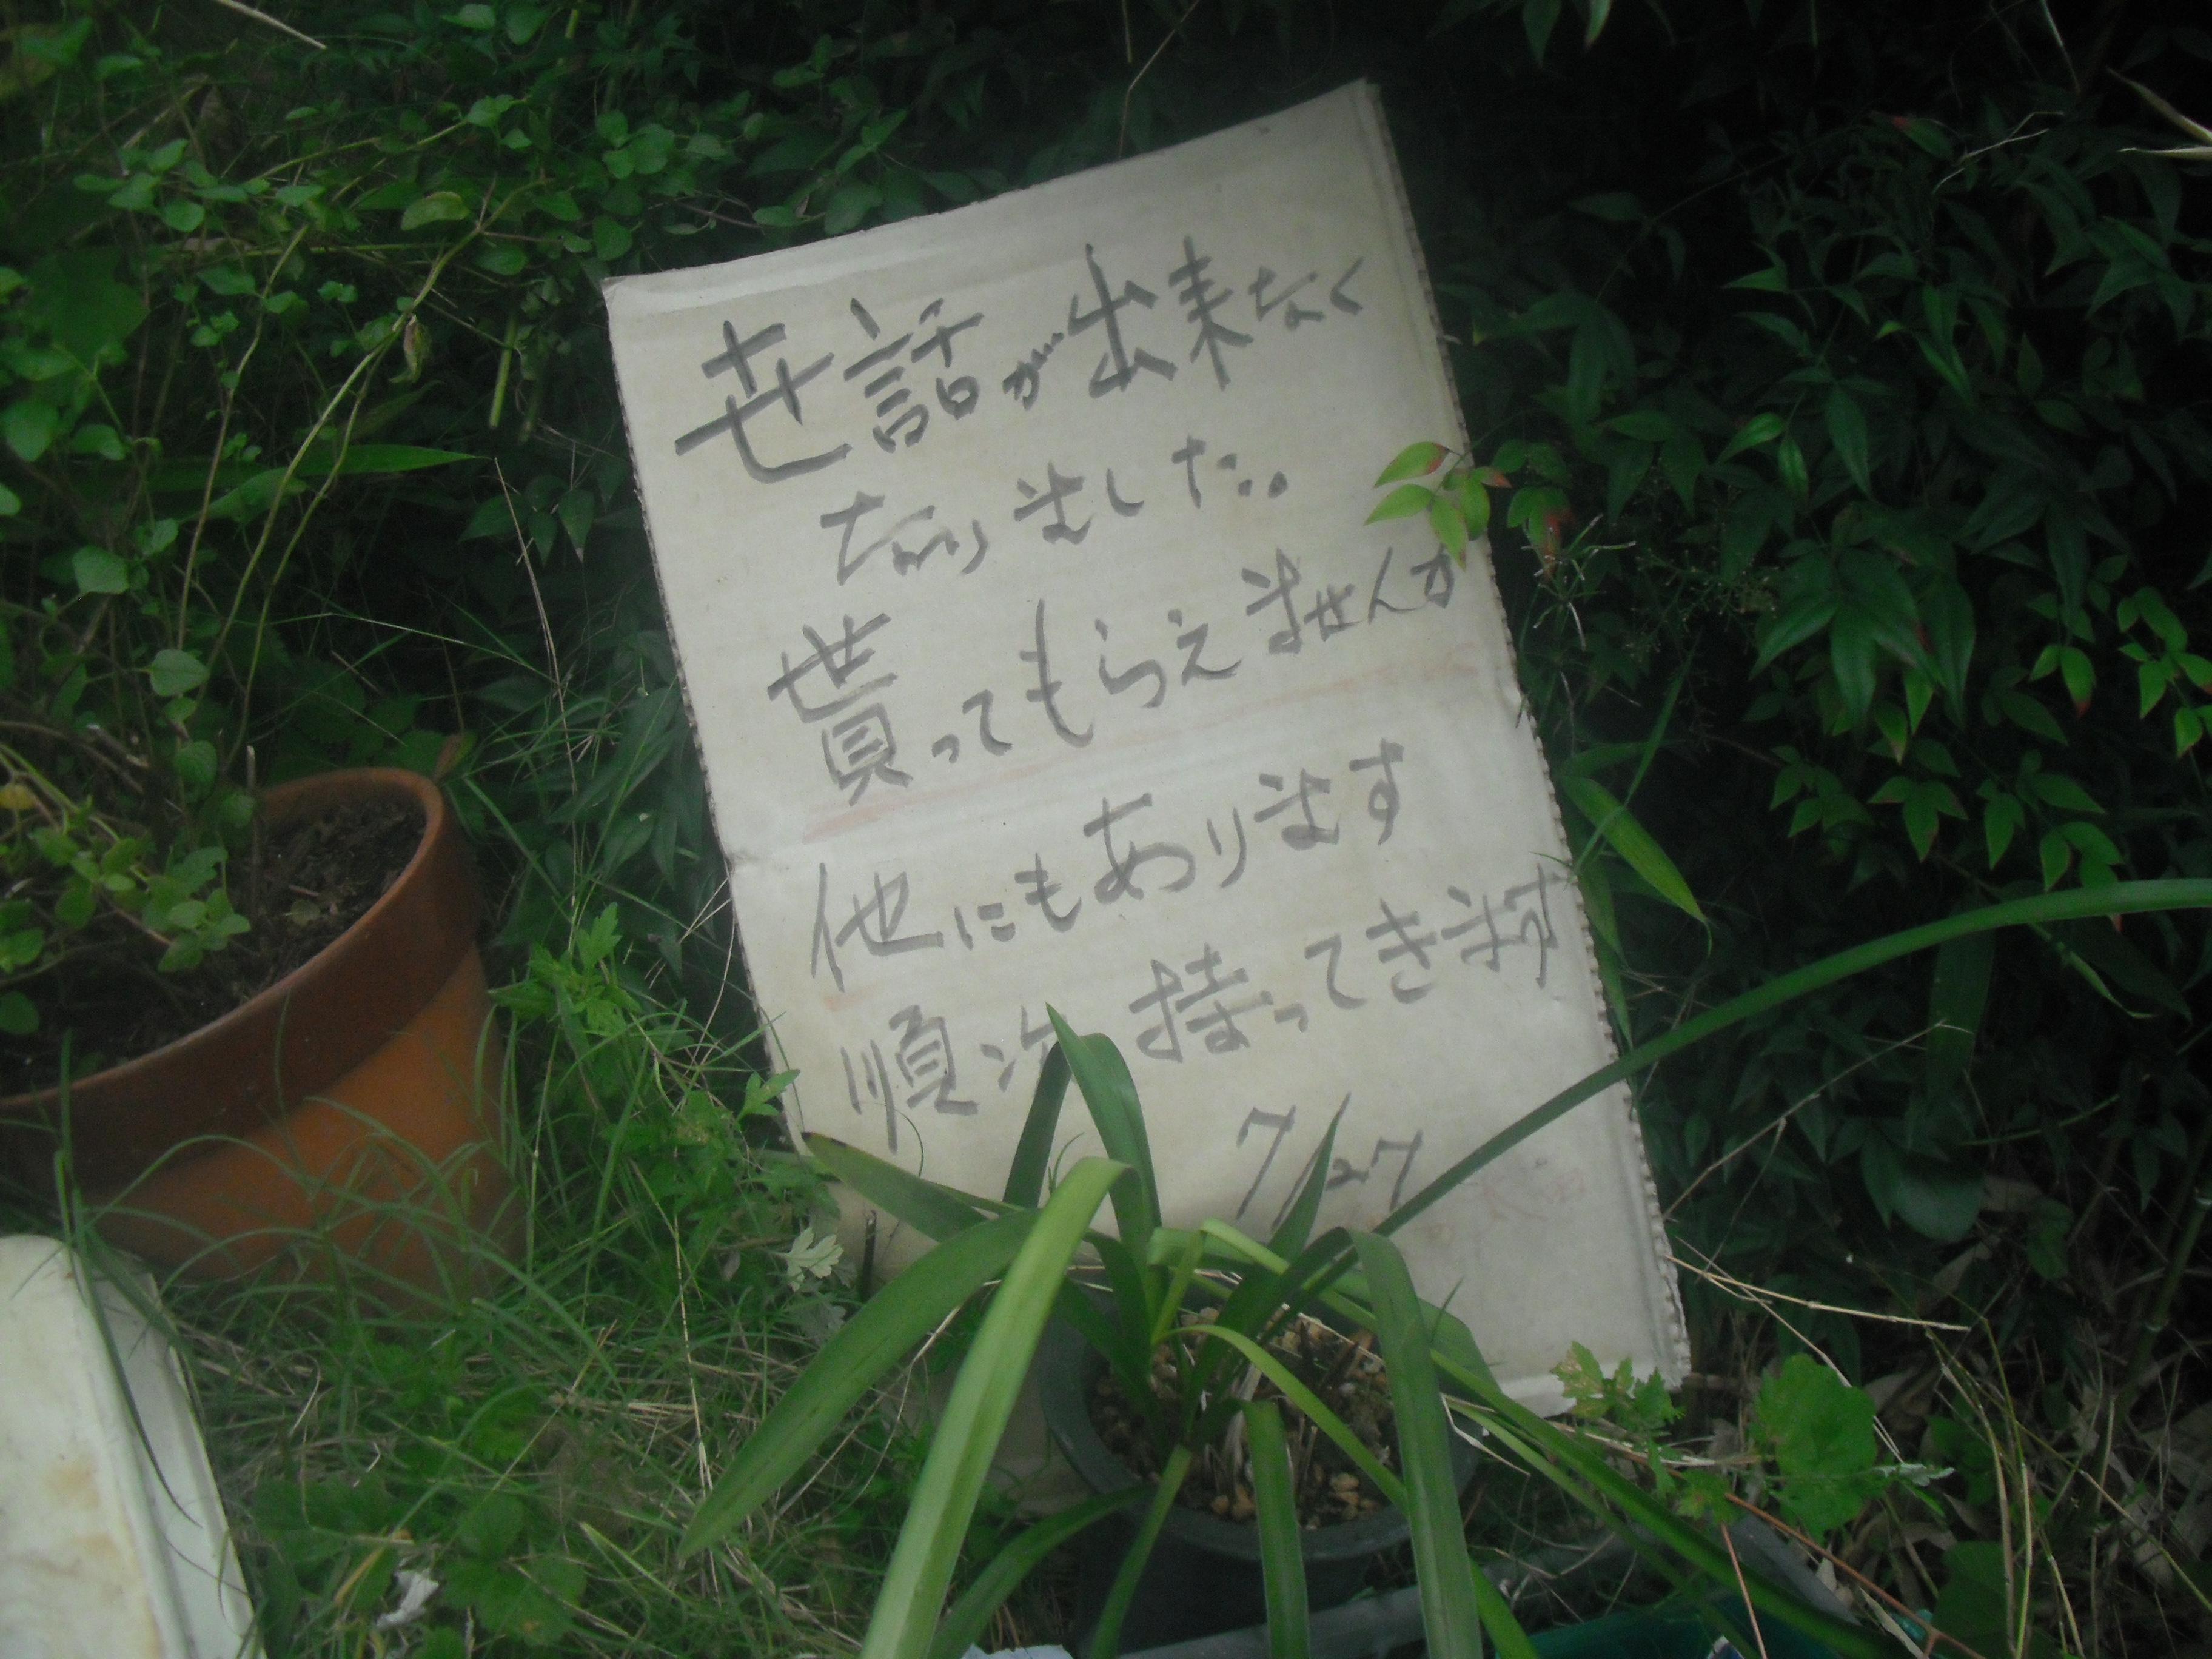 世話が出来なく
なりました。
貰ってもらえませんか
他にもあります
順次持ってきます
7/27